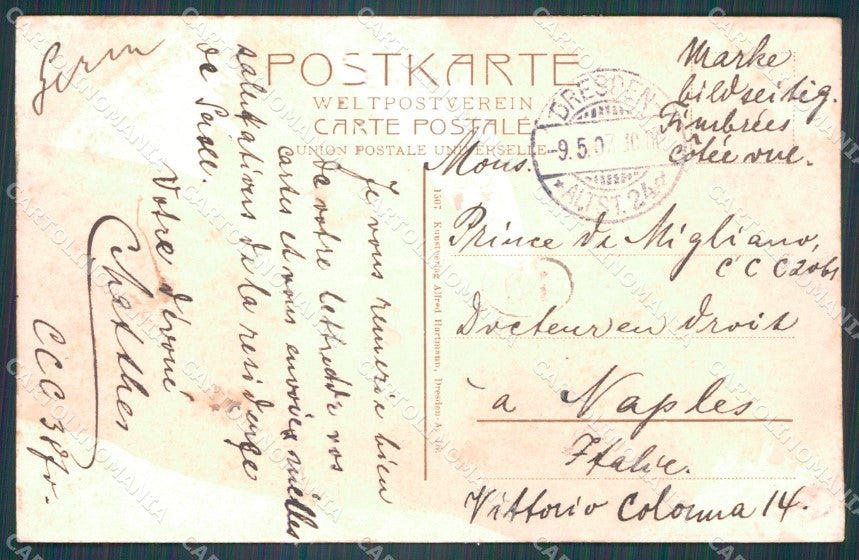 Germ
POSTKARTE
WELTPOSTVEREIN
CARTE POSTALE
UNION POSTALE UNIVERSELLE
DRESDEN
-9.5.07
*ALTST. 24 d
Marke
bildseitig.
Timbrées
côtée vue.
Mons.
Prince de Migliano,
C C C 2061
Docteur en droit
à Naples
Italie.
Vittorio Colonna 14.
1507 Kunstverlag Alfred Hartmann, Dresden-A.
Je vous remercie bien
de votre lettre de vos
cartes et vous envoie milles
salutations de la residence
de Saxe.
Votre dévoué
CCC
CARTOLINOMANIA